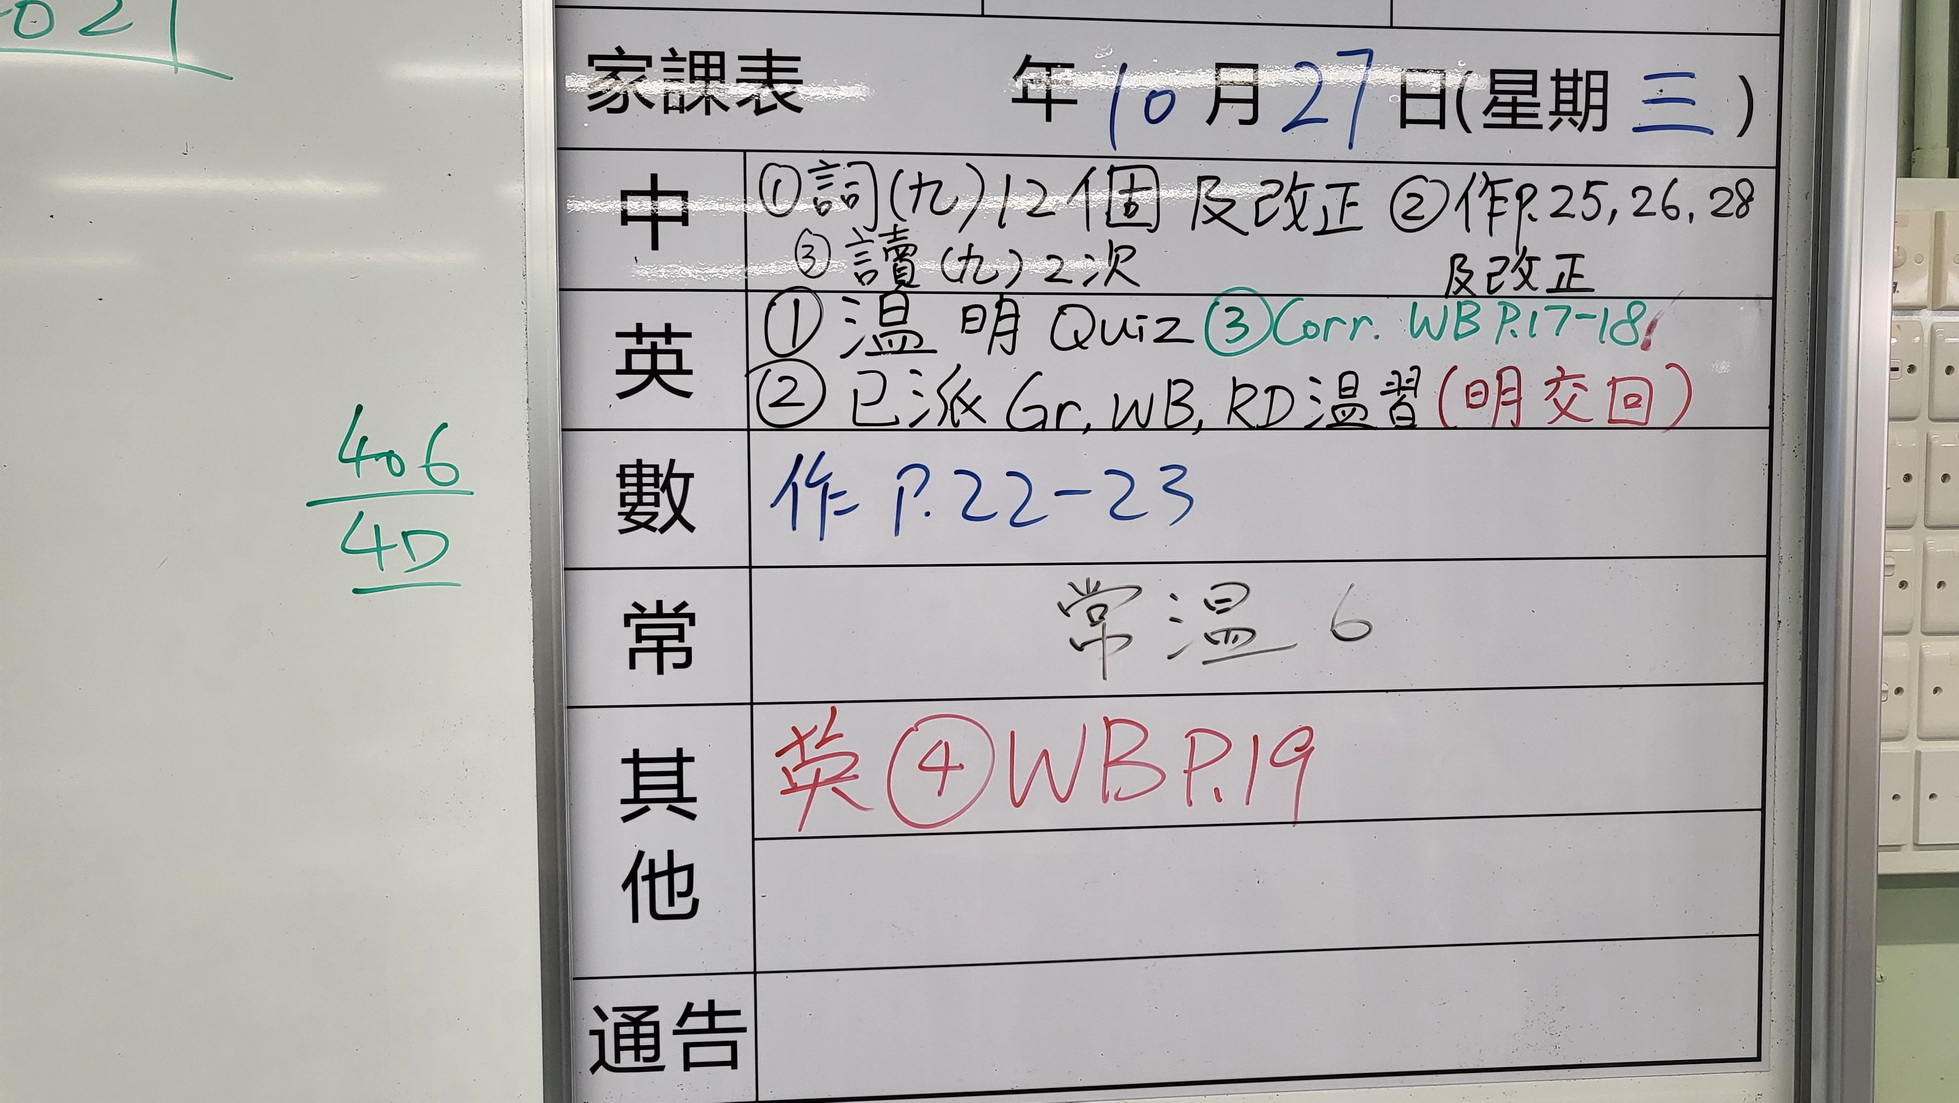 家課表 年10月27日(星期三)
中
①詞(九)12個及改正 ②作P.25,26,28
③讀(九)2次 及改正
英
①温 明 Quiz ③Corr. WB P.17-18,
②已派 Gr, WB, RD温習(明交回)
數
作 P.22-23
常
常温6
其他
英④WBP.19
通告
406
4D